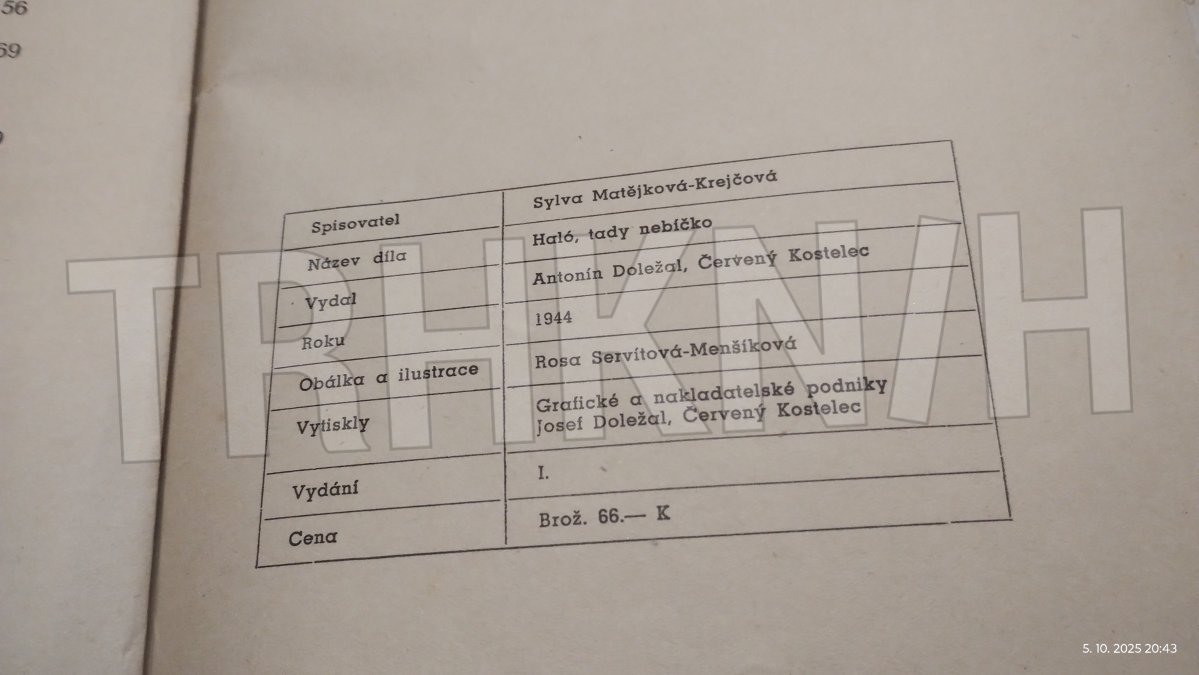 56
69
Spisovatel Sylva Matějková-Krejčová
Název díla Haló, tady nebíčko
Vydal Antonín Doležal, Červený Kostelec
Roku 1944
Obálka a ilustrace Rosa Servítová-Menšíková
Vytiskly Grafické a nakladatelské podniky
Josef Doležal, Červený Kostelec
Vydání I.
Cena Brož. 66.— K
TRHKN/H
5. 10. 2025 20:43